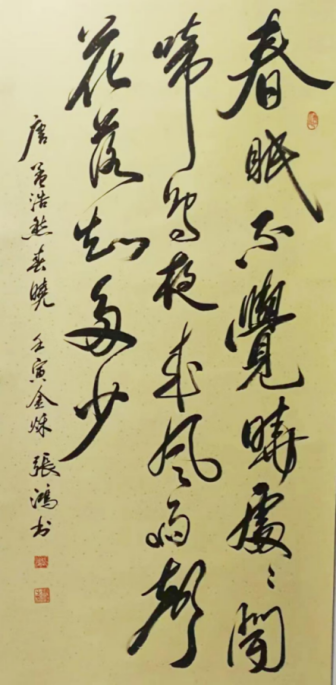 春眠不覺曉處〻聞
啼鳥夜来風雨聲
花落知多少
唐孟浩然春曉 壬寅金秋 張鴻书